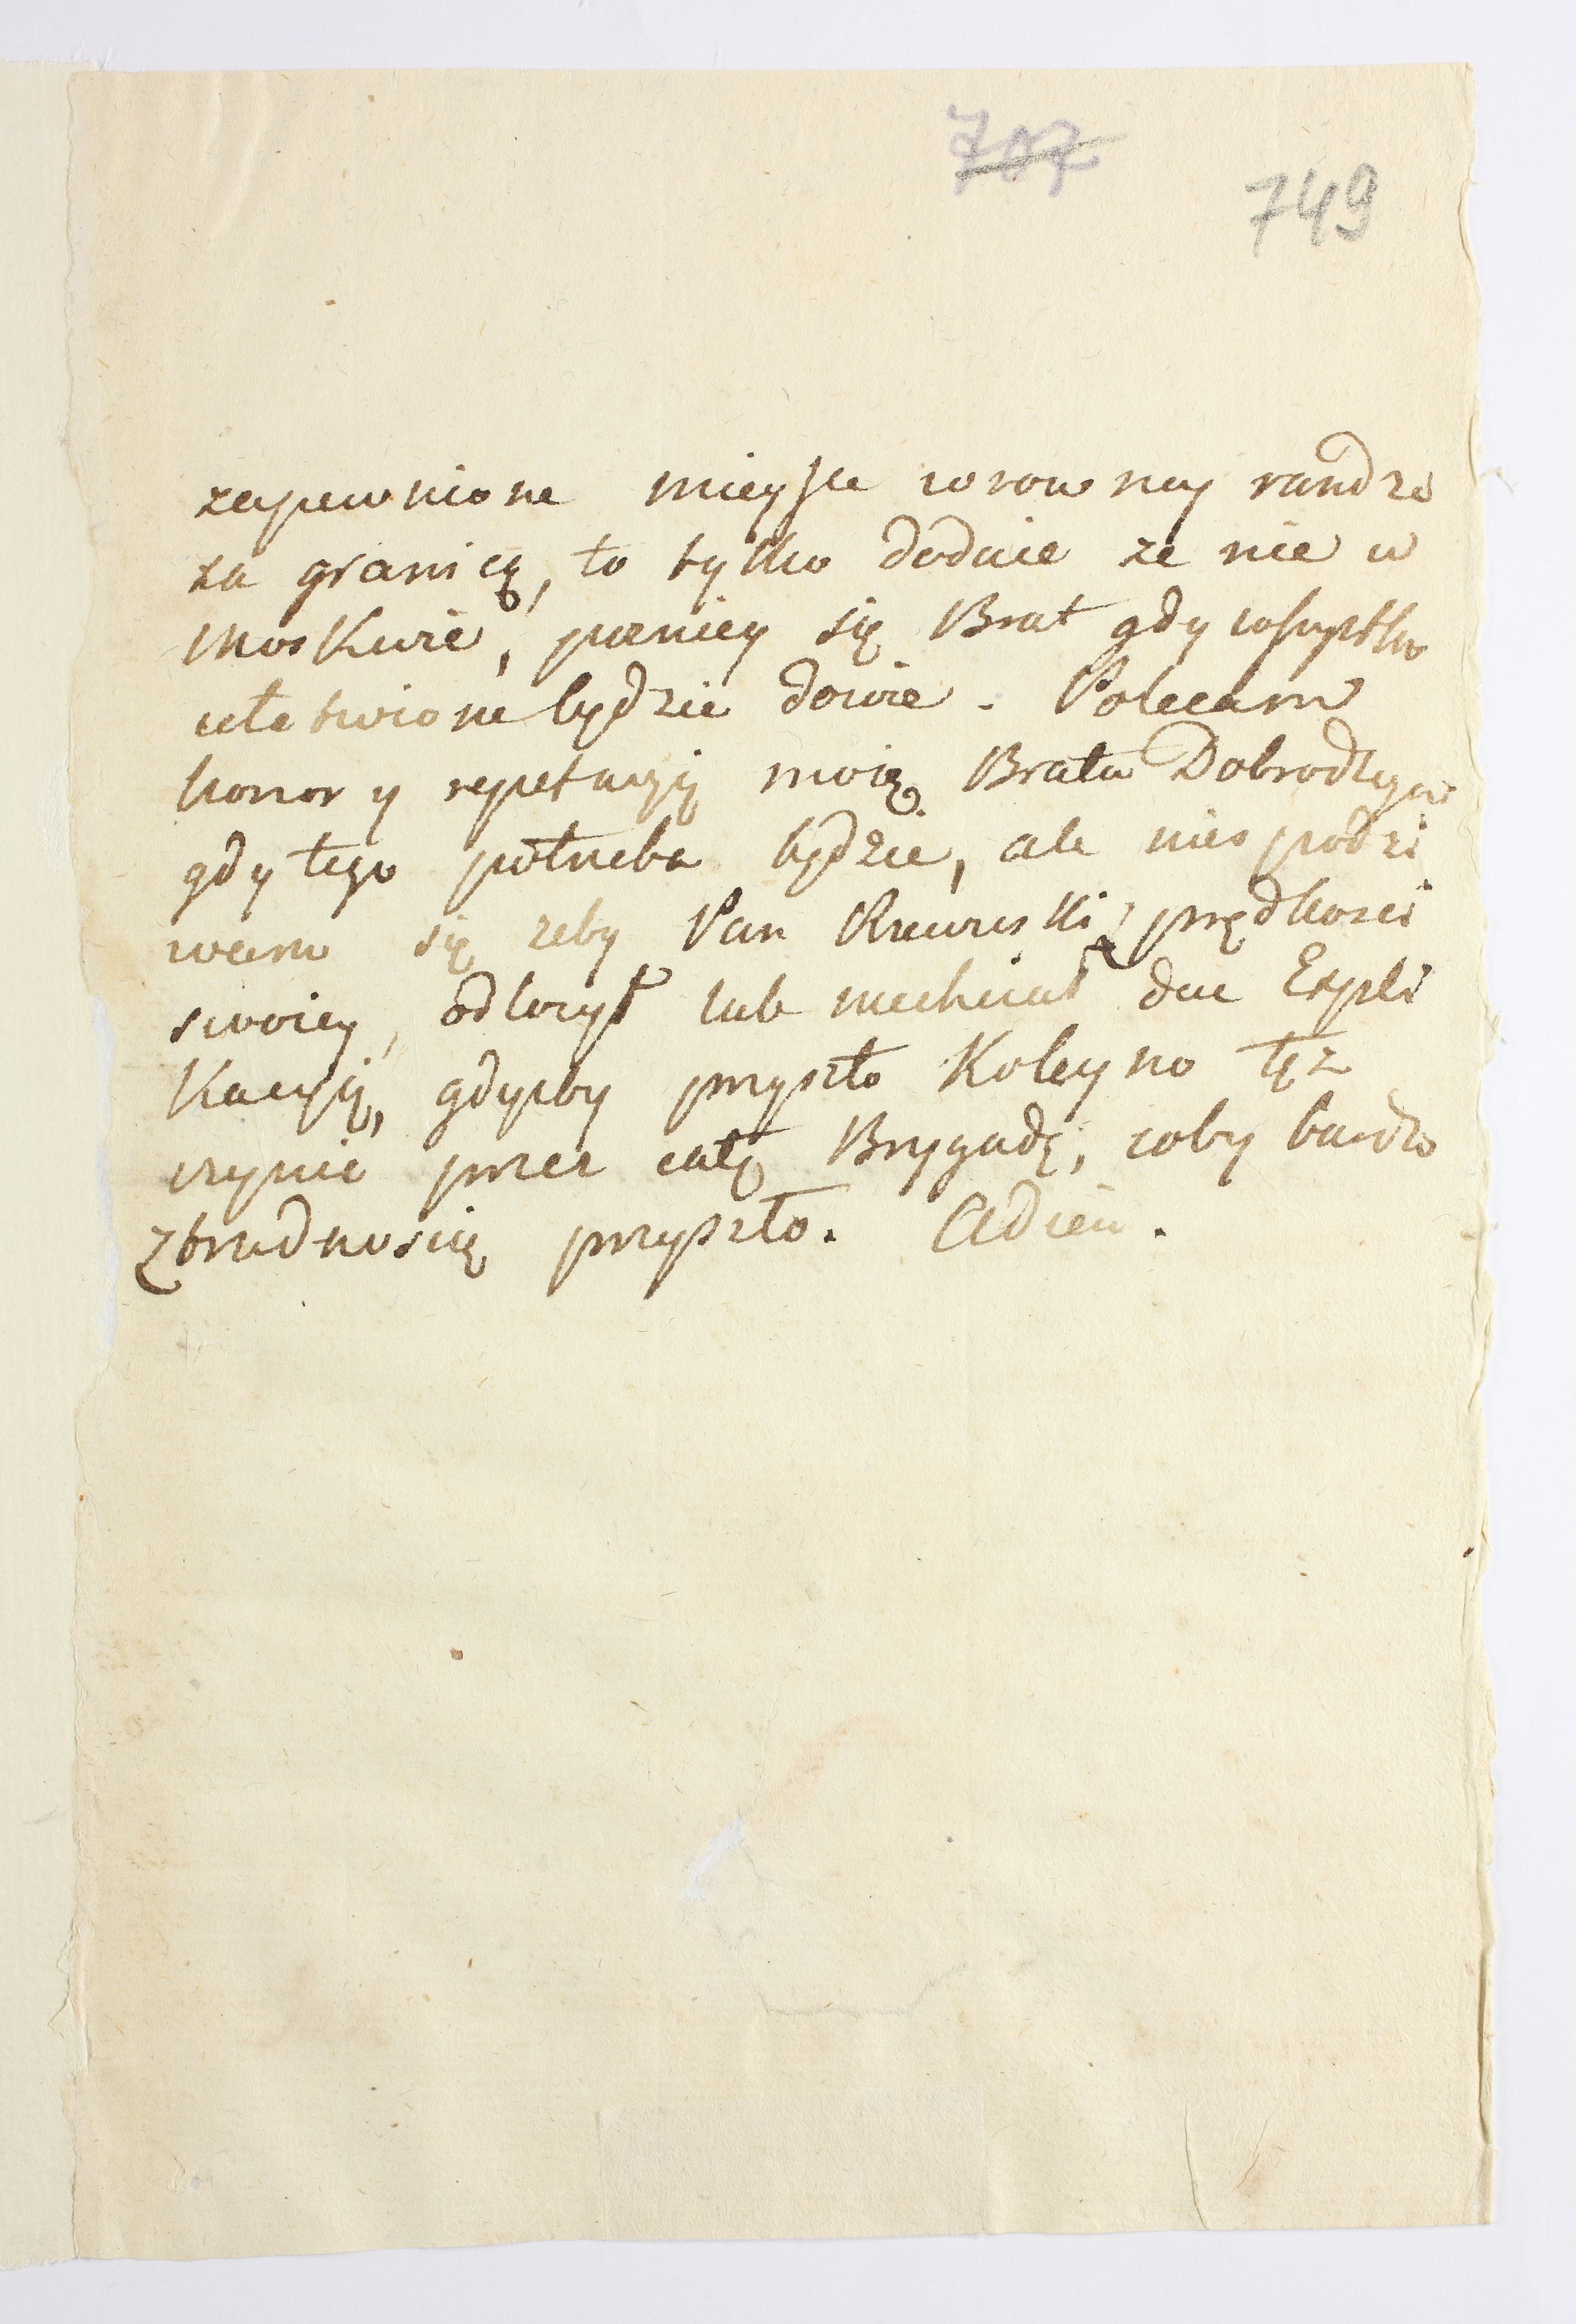 707
749
zapewnione mieysce w rowney randze
za granicą, to tylko dodaie ze nie w
Moskwie, pozniey się Brat gdy wszystko
ułatwione będzie dowie. Polecam
honor y reputacyią moię Bratu Dobrodzyowi
gdy tego potrzeba będzie, ale niespodzi
wam się zeby Pan Rzewuski z prędkosci
swoiey, odłozył lub niechciał dac Expli
Kacyią, gdyby przyszło Koleyno tęz
czynic przez całą Brygadę, coby bardzo
z trudnoscią przyszło. Adieu.